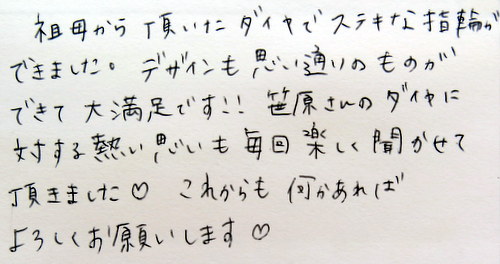 祖母から頂いたダイヤでステキな指輪が
できました。デザインも思い通りのものが
できて大満足です!! 笹原さんのダイヤに
対する熱い思いも毎回楽しく聞かせて
頂きました♡ これからも何かあれば
よろしくお願いします♡